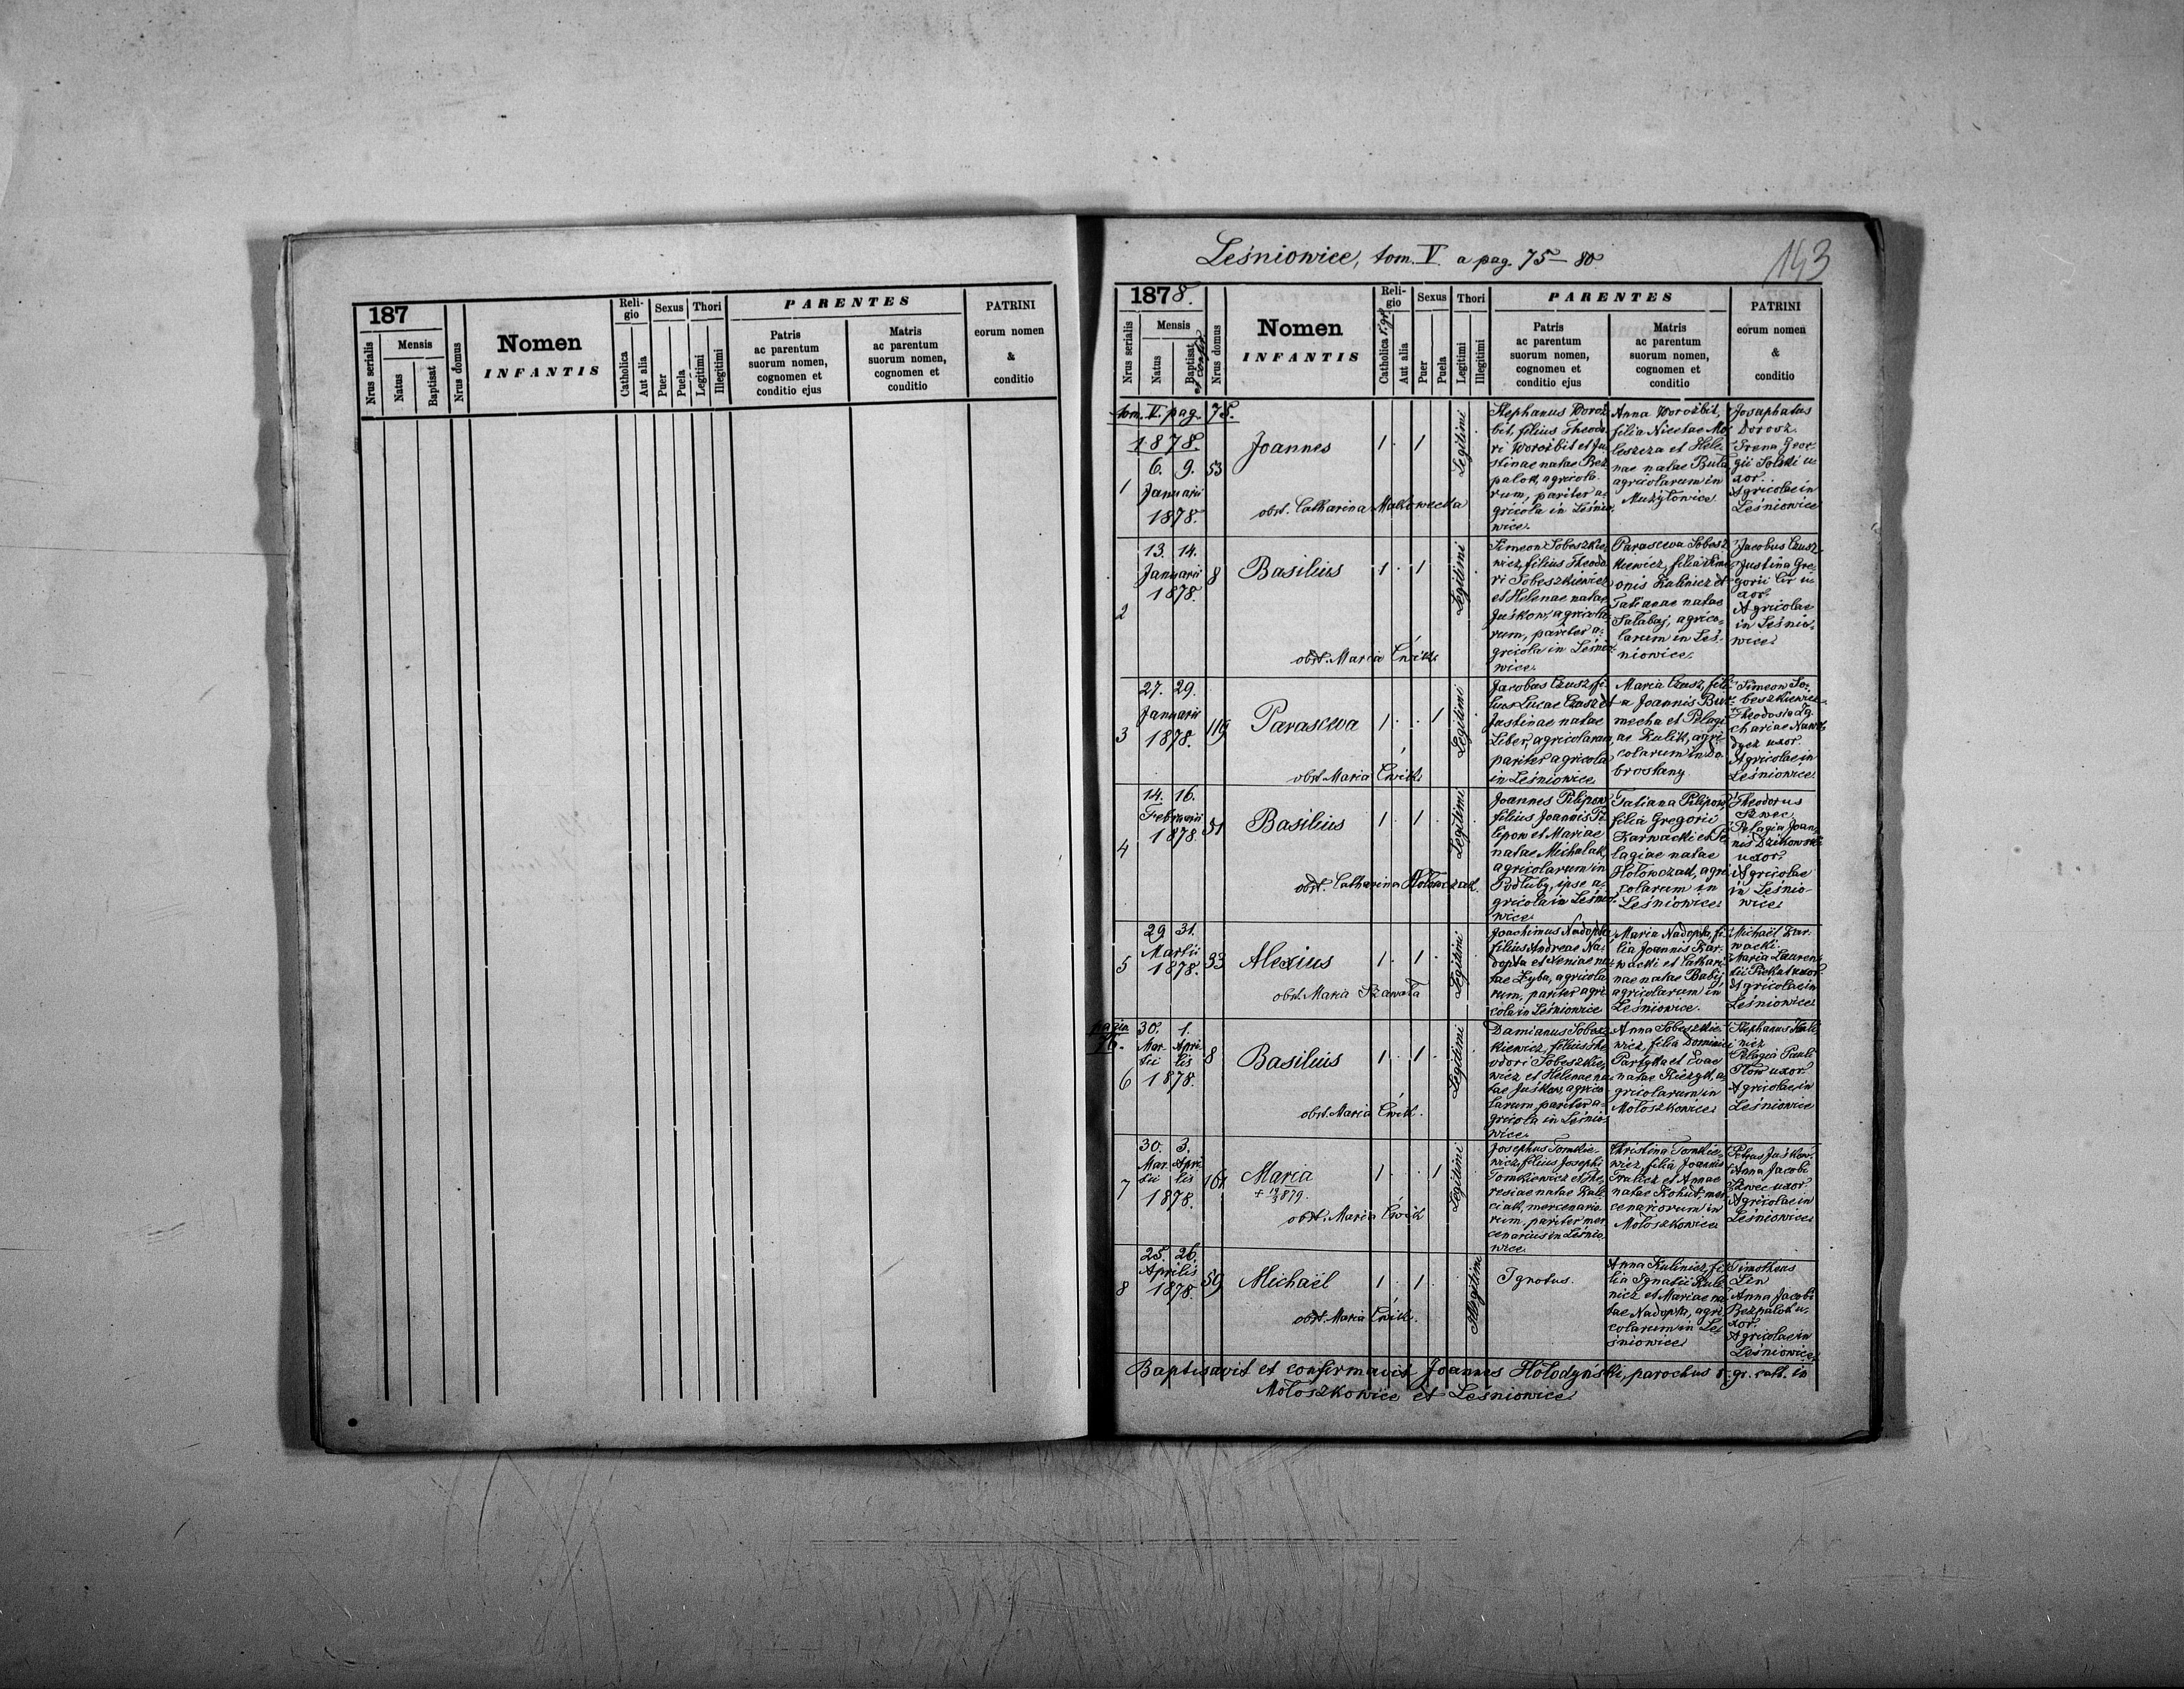 187
Nrus serialis
Mensis
Natus
Baptisat
Nrus domus
Nomen
INFANTIS
Reli-
gio
Catholica
Aut alia
Sexus
Puer
Puela
Thori
Legitimi
Illegitimi
PARENTES
Patris
ac parentum
suorum nomen,
cognomen et
conditio ejus
Matris
ac parentum
suorum nomen,
cognomen et
conditio
PATRINI
eorum nomen
&
conditio
Leśniowice, tom. V. a pag. 75 – 80
143
1878.
Nrus serialis
Mensis
Natus
Baptisat
et confir.
Nrus domus
Nomen
INFANTIS
Reli-
gio
Catholica r. gr.
Aut alia
Sexus
Puer
Puela
Thori
Legitimi
Illegitimi
PARENTES
Patris
ac parentum
suorum nomen,
cognomen et
conditio ejus
Matris
ac parentum
suorum nomen,
cognomen et
conditio
PATRINI
eorum nomen
&
conditio
tom. V. pag. 75.
1878.
1
6. 9.
Januarii
1878.
53
Joannes
1. 1
Legitimi
obst. Catharina Makowecka
Stephanus Worož-
bit, filius Theodo-
ri Worožbit et Ju-
stinae natae Bez-
palok, agricola-
rum, pariter a-
gricola in Leśnio-
wice.
Anna Worožbit,
filia Nicetae Mo-
leszcza et Hele-
nae natae Buła
agricolarum in
Mużyłowice
Josaphatus
Dorosz.
Irena Geor-
gii Solski u-
xor.
Agricolae in
Leśniowice
2
13. 14.
Januarii
1878.
8
Basilius
1. 1
Legitimi
obst. Maria Ćwik
Simeon Sobeszkie-
wicz, filius Theodo-
ri Sobeszkiewicz
et Helenae natae
Juśkow, agricola-
rum, pariter a-
gricola in Leśnio-
wice.
Parasceva Sobesz-
kiewicz, filia Sime-
onis Kulinicz et
Tatianae natae
Salabaj, agrico-
larum in Leś-
niowice.
Jacobus Czusz
Justina Gre-
gorii Cir u-
xor.
Agricolae
in Leśnio-
wice
3
27. 29.
Januarii
1878.
119
Parasceva
1. 1
Legitimi
obst. Maria Ćwik
Jacobus Czusz, fi-
lius Lucae Czusz et
Justinae natae
Liber, agricolarum
pariter agricola
in Leśniowice.
Maria Czusz, fili-
a Joannis Bur-
mecha et Pelagi-
ae Kulik, agri-
colarum in Do-
brostany
Simeon So-
beszkiewicz
Theodosia Za-
chariae Nawo-
dycz uxor.
Agricolae in
Leśniowice
4
14. 16.
Februarii
1878.
Basilius
1. 1.
Legitimi
obst. Catharina Hołowczak.
Joannes Pilipow
filius Joannis Pi-
lipow et Mariae
natae Michalak,
agricolarum in
Podłuby, ipse a-
gricola in Leśnio-
wice.
Tatiana Pilipow,
filia Gregorii
Karwacki et Pe-
lagiae natae
Hołowczak, agri-
colarum in
Leśniowice
Theodorus
Szwec
Pelagia Joan-
nis Dzikowski
uxor.
Agricolae
in Leśnio-
wice
5
29. 31.
Martii
1878.
33
Alexius
1. 1.
Legitimi
obst. Maria Szawała
Joachimus Nadopta
filius Andreae Na-
dopta et Xeniae na-
tae Zyba, agricola-
rum, pariter agri-
cola in Leśniowice
Maria Nadopta, fi-
lia Joannis Kar-
wacki et Cathari-
nae natae Babij,
agricolarum in
Leśniowice.
Michaël Kar-
wacki.
Maria Lauren-
tii Piekut uxor.
Agricolae in
Leśniowice
pagin.
76.
6
30. 1.
Mar- Apri-
tii lis
1878.
8
Basilius
1. 1.
Legitimi
obst. Maria Ćwik.
Damianus Sobesz-
kiewicz, filius The-
odori Sobeszkie-
wicz et Helenae na-
tae Juśkow, agrico-
larum pariter a-
gricola in Leśnio-
wice.
Anna Sobeszkie-
wicz, filia Dominici
Partyka et Evae
natae Kiczyk, a-
gricolarum in
Mołoszkowice
Stephanus Kuli-
nicz
Pelagia Pauli
Tłow uxor.
Agricolae in
Leśniowice
7
30. 3.
Mar- Apri-
tii lis
1878.
161
Maria
+ 879.
1. 1
Legitimi
obst. Maria Ćwik
Josephus Tomkie-
wicz, filius Josephi
Tomkiewicz et The-
resiae natae Kali-
ciak, mercenario-
rum, pariter mer-
cenarius in Leśnio-
wice.
Christina Tomkie-
wicz, filia Joannis
Tralicz et Annae
natae Kohut, mer-
cenariorum in
Mołoszkowice
Petrus Juśkow.
Anna Jacobi
Szwec uxor
Agricolae in
Leśniowice
8
25. 26.
Aprilis
1878.
59
Michaël
1. 1.
Illegitimi
obst. Maria Ćwik.
Ignotus.
Anna Kulinicz, fi-
lia Ignatii Kuli-
nicz et Mariae na-
tae Nadopta, agri-
colarum in Le-
śniowice
Timotheus
Len
Anna Jacobi
Bezpalok u-
xor.
Agricolae in
Leśniowice
Baptisavit et confirmavit Joannes Hołodyński, parochus r. gr. cath. in
Mołoszkowice et Leśniowice